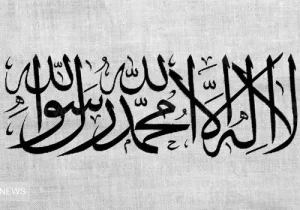 لا اله الا الله محمد رسول الله
NEWS